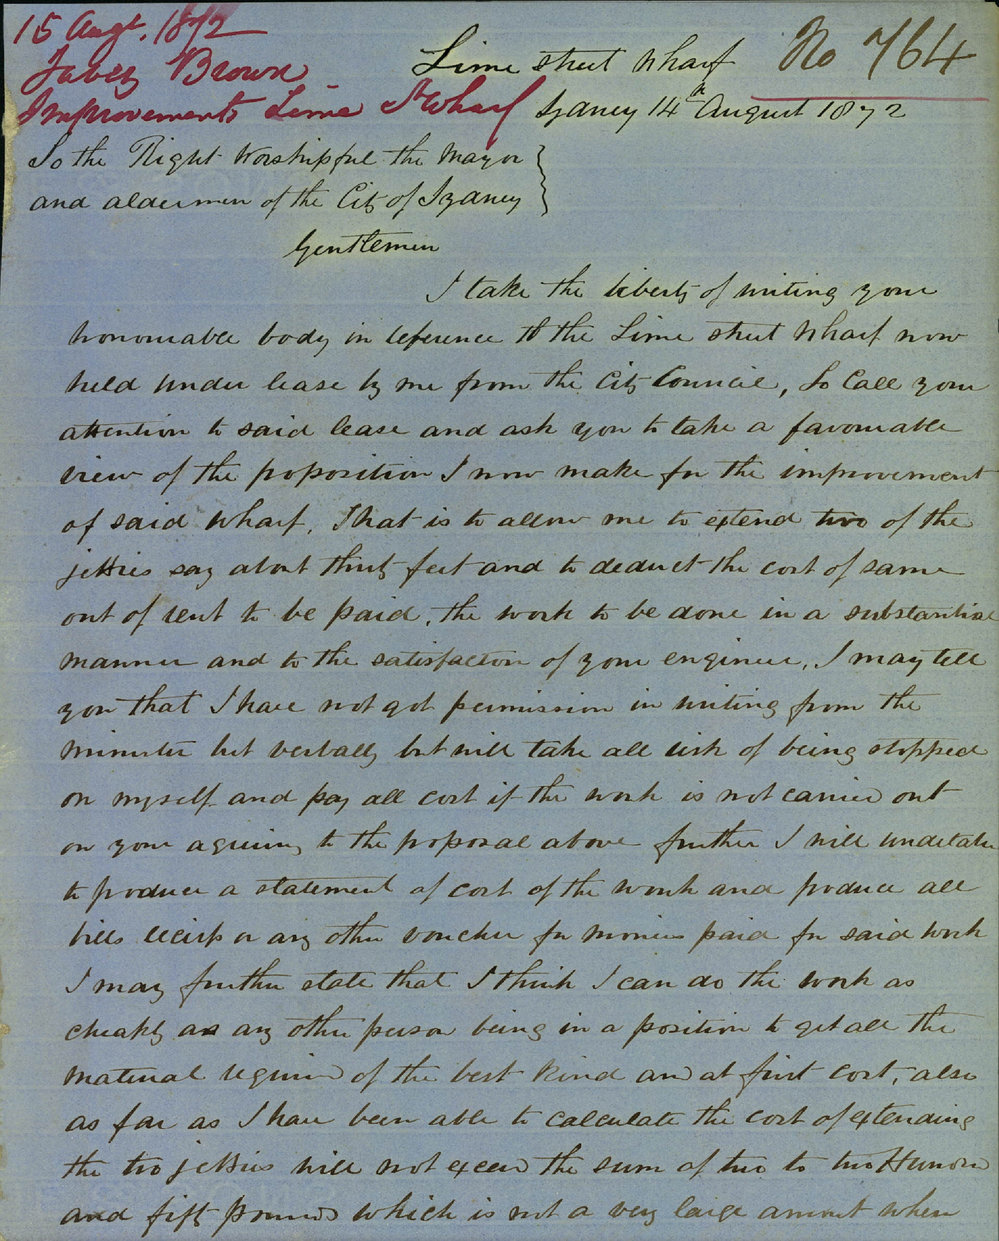 15 Augt. 1872
Jabez Brown
Improvements Lime St Wharf
No 764
Lime street Wharf
Sydney 14th August 1872
To the Right Worshipful the Mayor
and aldermen of the City of Sydney
Gentlemen
I take the liberty of writing your
honourable body in reference to the Lime street Wharf now
held under lease by me from the City Council, To Call your
attention to said lease and ask you to take a favourable
view of the proposition I now make for the improvement
of said Wharf. That is to allow me to extend two of the
jetties say about thirty feet and to deduct the cost of same
out of rent to be paid, the work to be done in a substantial
manner and to the satisfaction of your engineer, I may tell
you that I have not got permission in writing from the
minister but verbally but will take all risk of being stopped
on myself and pay all cost if the work is not carried out
on your agreeing to the proposal above further I will undertake
to produce a statement of cost of the work and produce all
bills or any other voucher for monies paid for said work
I may further state that I think I can do the work as
cheaply as any other person being in a position to get all the
material required of the best kind and at first cost, also
as far as I have been able to calculate the cost of extending
the two jetties will not exceed the sum of two to two Hundred
and fifty pounds which is not a very large amount when